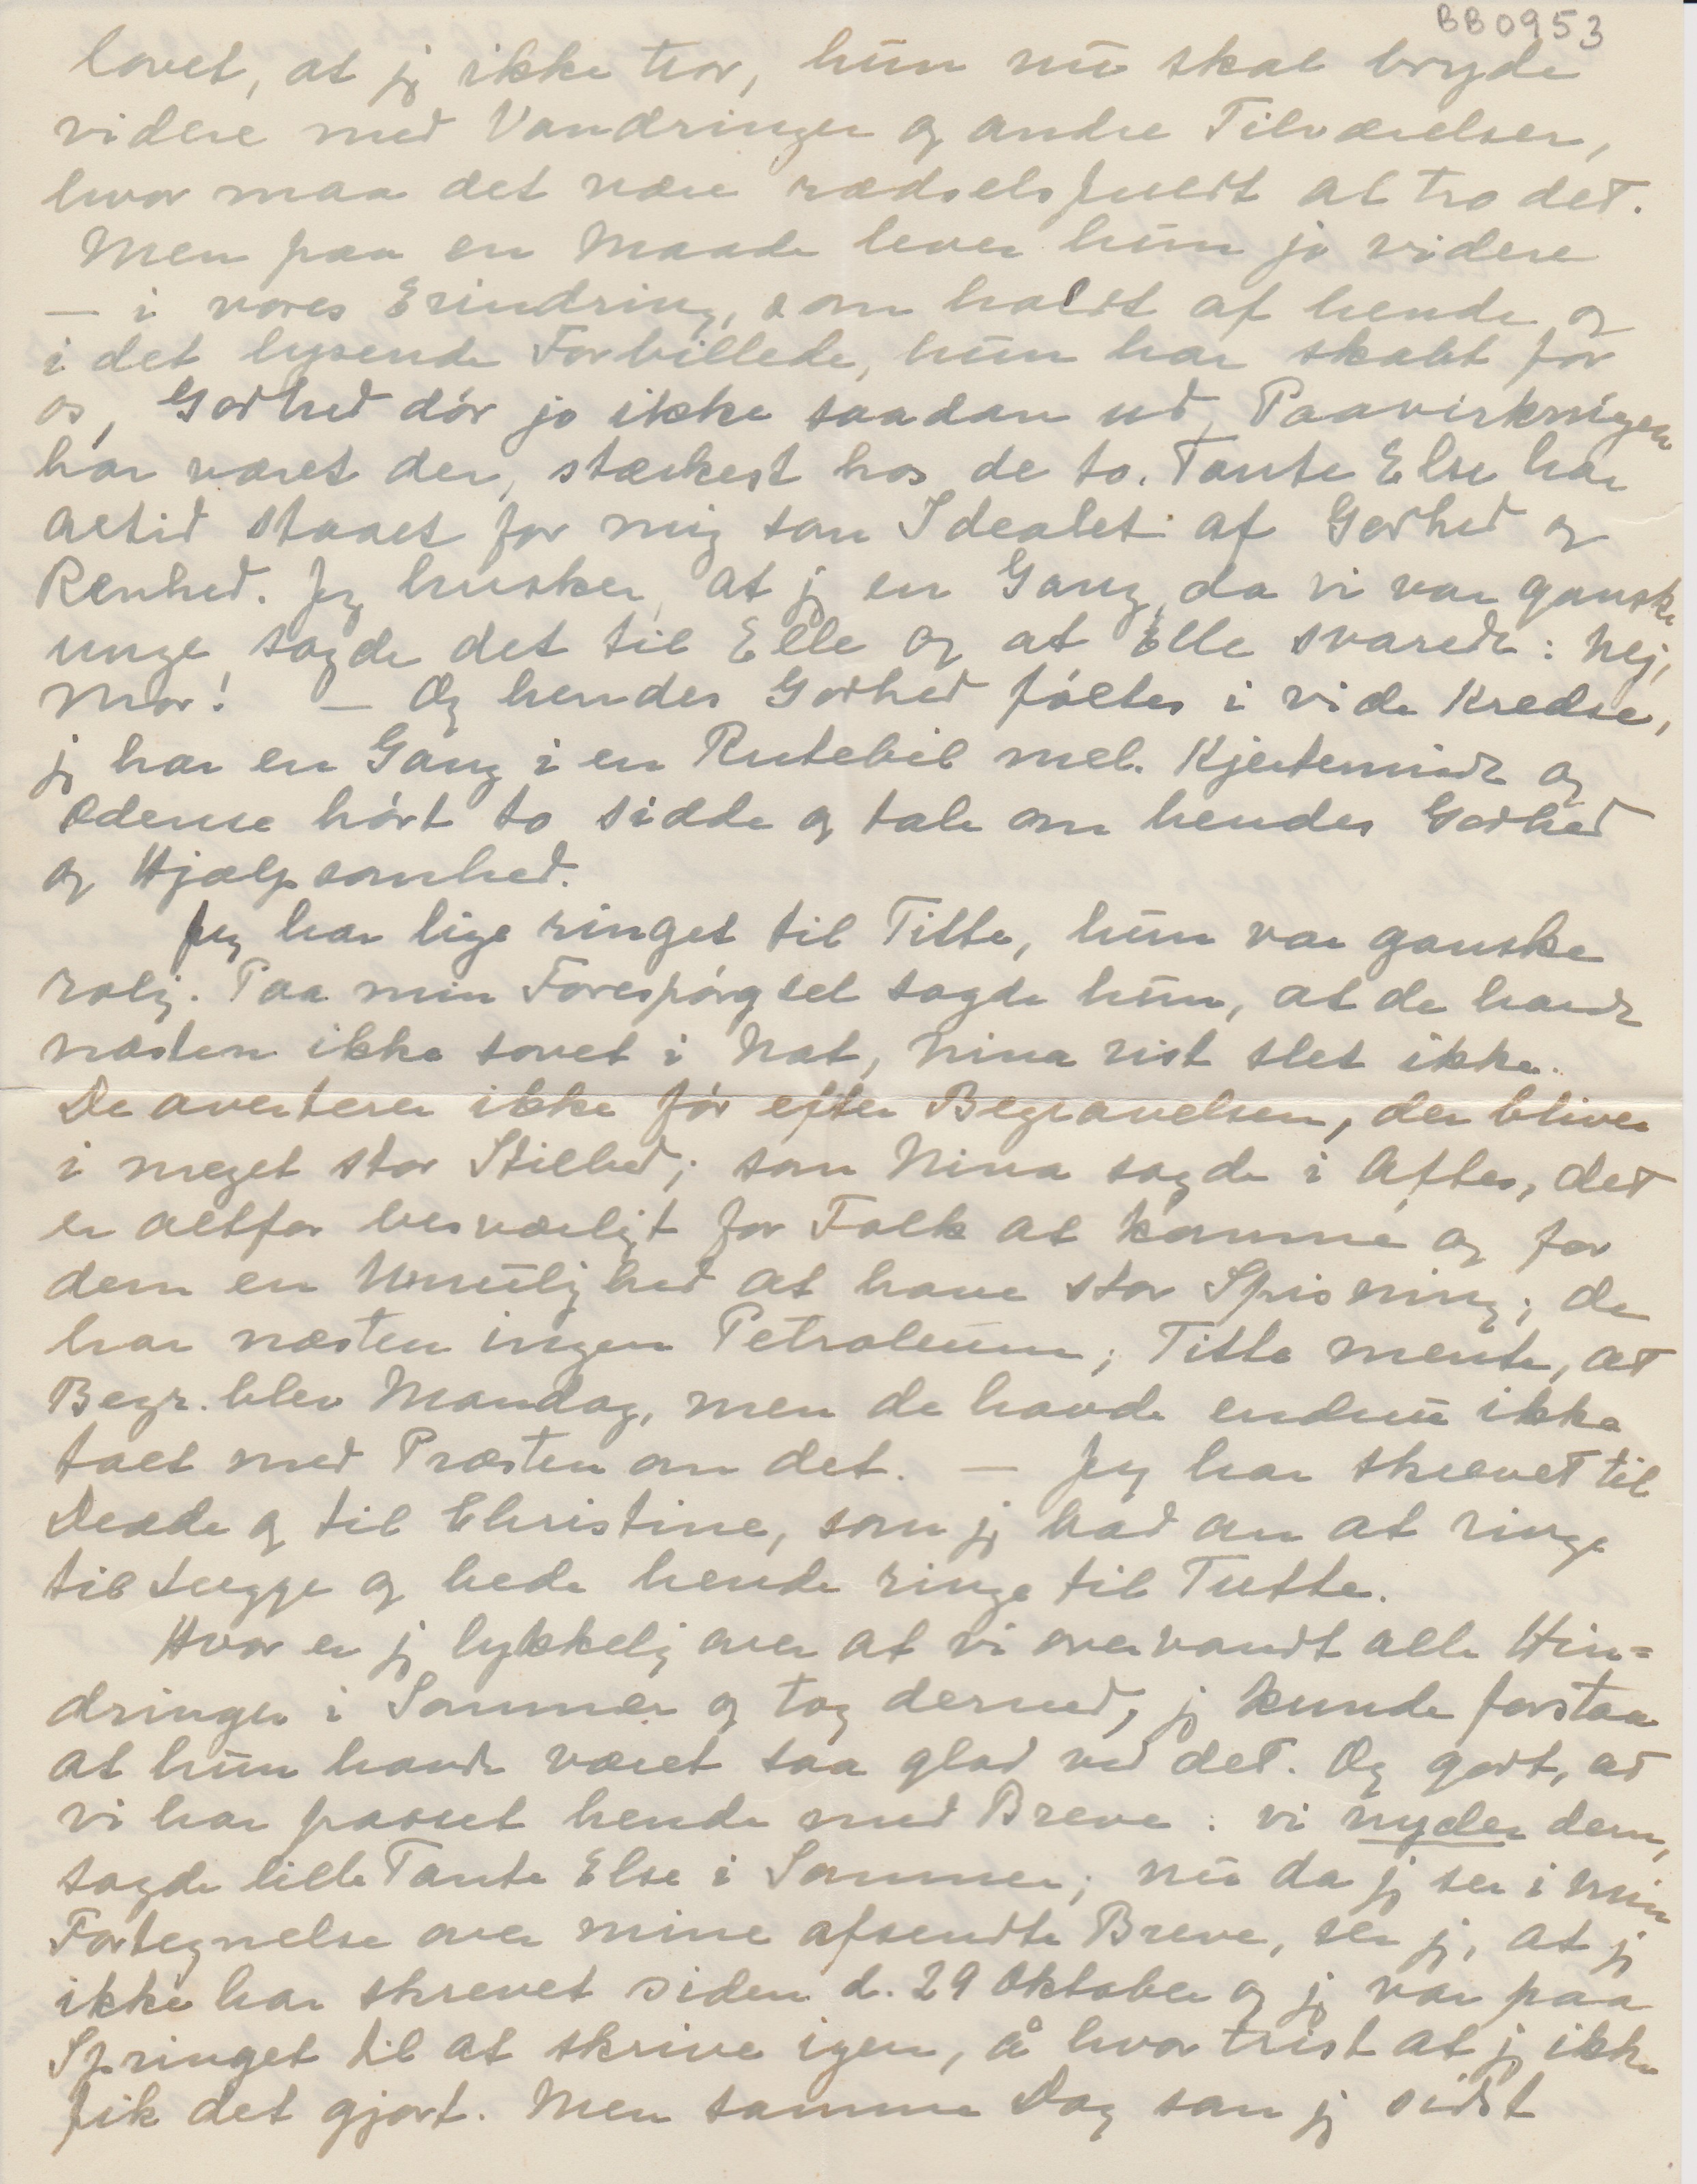 BB0953
lovet, at jg ikke tror, hun nu skal bryde
videre med Vandringer og andre Tilværelser,
hvor maa det være rædselsfuldt at tro det.
Men paa en Maade lever hun jo videre
— i vores Erindring, som holdt af hende og
i det lysende Forbillede, hun har skabt for
os, Godhed dör jo ikke saadan ud, Paavirkningen
har været der, stærkest hos de to. Tante Else har
altid staaet for mig som Idealet af Godhed og
Renhed. Jeg husker, at jg en Gang, da vi var ganske
unge sagde det til Elle og at Elle svarede: Nej,
Mor! — Og hendes Godhed föltes i vide Kredse,
jg har en Gang i en Rutebil mel. Kjerteminde og
Odense hört to sidde og tale om hendes Godhed
og Hjælpsomhed.
Jeg har lige ringet til Titte, hun var ganske
rolig. Paa min Forespörgsel sagde hun, at de havde
næsten ikke sovet i Nat, Nina vist slet ikke.
De averterer ikke för efter Begravelsen, der bliver
i meget stor Stilhed; som Nina sagde i Aftes, det
er altfor besværligt for Folk at komme og for
dem en Umulighed at have stor Spisning; de
har næsten ingen Petroleum; Titte mente, at
Begr. blev Mandag, men de havde endnu ikke
talt med Præsten om det. — Jeg har skrevet til
Dede og til Christine, som jg bad om at ringe
til Lugge og bede hende ringe til Tutte.
Hvor er jg lykkelig over at vi overvandt alle Hin=
dringer i Sommer og tog derned, jg kunde forstaa
at hun havde været saa glad ved det. Og godt, at
vi har passet hende med Breve: vi nyder dem,
sagde lille Tante Else i Sommer; nu da jg ser i min
Fortegnelse over mine afsendte Breve, ser jg, at jg
ikke har skrevet siden d. 29 Oktober og jg var paa
Springet til at skrive igen, å hvor trist at jg ikke
fik det gjort. Men samme Dag som jg sidst